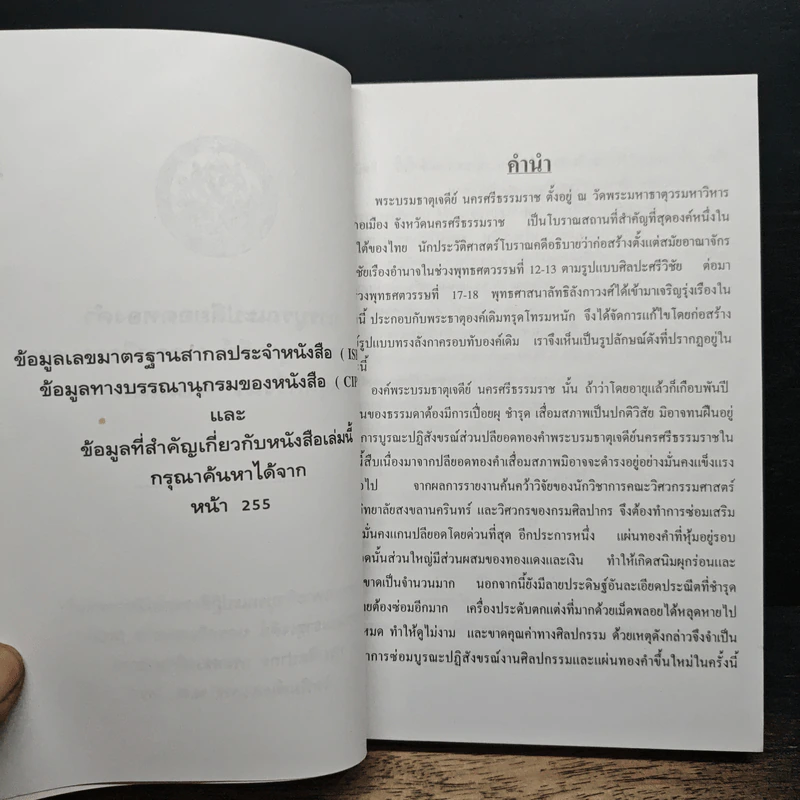 ข้อมูลเลขมาตรฐานสากลประจำหนังสือ ( IS
ข้อมูลทางบรรณานุกรมของหนังสือ ( CIP
และ
ข้อมูลที่สำคัญเกี่ยวกับหนังสือเล่มนี้
กรุณาค้นหาได้จาก
หน้า 255
คำนำ
พระบรมธาตุเจดีย์ นครศรีธรรมราช ตั้งอยู่ ณ วัดพระมหาธาตุวรมหาวิหาร
อเมือง จังหวัดนครศรีธรรมราช เป็นโบราณสถานที่สำคัญที่สุดองค์หนึ่งใน
ใต้ของไทย นักประวัติศาสตร์โบราณคดีอธิบายว่าก่อสร้างตั้งแต่สมัยอาณาจักร
ชัยเรืองอำนาจในช่วงพุทธศตวรรษที่ 12-13 ตามรูปแบบศิลปะศรีวิชัย ต่อมา
่วงพุทธศตวรรษที่ 17-18 พุทธศาสนาลัทธิลังกาวงศ์ได้เข้ามาเจริญรุ่งเรืองใน
นี้ ประกอบกับพระธาตุองค์เดิมทรุดโทรมหนัก จึงได้จัดการแก้ไขโดยก่อสร้าง
์รูปแบบทรงลังกาครอบทับองค์เดิม เราจึงเห็นเป็นรูปลักษณ์ดังที่ปรากฏอยู่ใน
นี้
องค์พระบรมธาตุเจดีย์ นครศรีธรรมราช นั้น ถ้าว่าโดยอายุแล้วก็เกือบพันปี
็นของธรรมดาต้องมีการเปื่อยผุ ชำรุด เสื่อมสภาพเป็นปกติวิสัย มิอาจทนฝืนอยู่
การบูรณะปฏิสังขรณ์ส่วนปลียอดทองคำพระบรมธาตุเจดีย์นครศรีธรรมราชใน
นี้สืบเนื่องมาจากปลียอดทองคำเสื่อมสภาพมิอาจจะดำรงอยู่อย่างมั่นคงแข็งแรง
อไป จากผลการรายงานค้นคว้าวิจัยของนักวิชาการคณะวิศวกรรมศาสตร์
วิทยาลัยสงขลานครินทร์ และวิศวกรของกรมศิลปากร จึงต้องทำการซ่อมเสริม
มั่นคงแกนปลียอดโดยด่วนที่สุด อีกประการหนึ่ง แผ่นทองคำที่หุ้มอยู่รอบ
อดนั้นส่วนใหญ่มีส่วนผสมของทองแดงและเงิน ทำให้เกิดสนิมผุกร่อนและ
ขาดเป็นจำนวนมาก นอกจากนี้ยังมีลายประดิษฐ์อันละเอียดประณีตที่ชำรุด
ายต้องซ่อมอีกมาก เครื่องประดับตกแต่งที่มากด้วยเม็ดพลอยได้หลุดหายไป
หมด ทำให้ดูไม่งาม และขาดคุณค่าทางศิลปกรรม ด้วยเหตุดังกล่าวจึงจำเป็น
ำการซ่อมบูรณะปฏิสังขรณ์งานศิลปกรรมและแผ่นทองคำขึ้นใหม่ในครั้งนี้